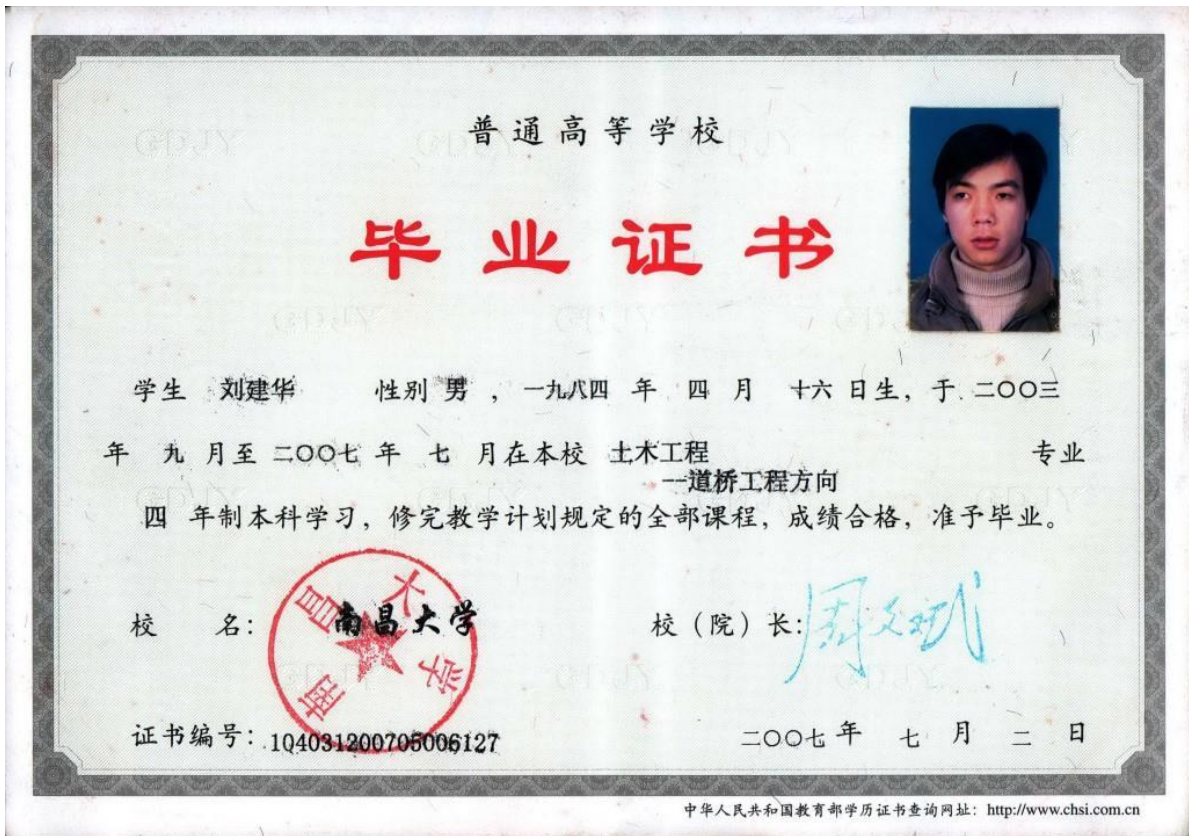 普通高等学校
毕业证书
学生 刘建华 性别 男 , 一九八四 年 四 月 十六 日生, 于 二〇〇三
年 九 月至 二〇〇七 年 七 月在本校 土木工程 专业
--道桥工程方向
四 年制本科学习, 修完教学计划规定的全部课程, 成绩合格, 准予毕业。
南昌大学
校 名: 南昌大学 校（院）长: 周文斌
证书编号: 104031200705006127 二〇〇七 年 七 月 二 日
中华人民共和国教育部学历证书查询网址: http://www.chsi.com.cn